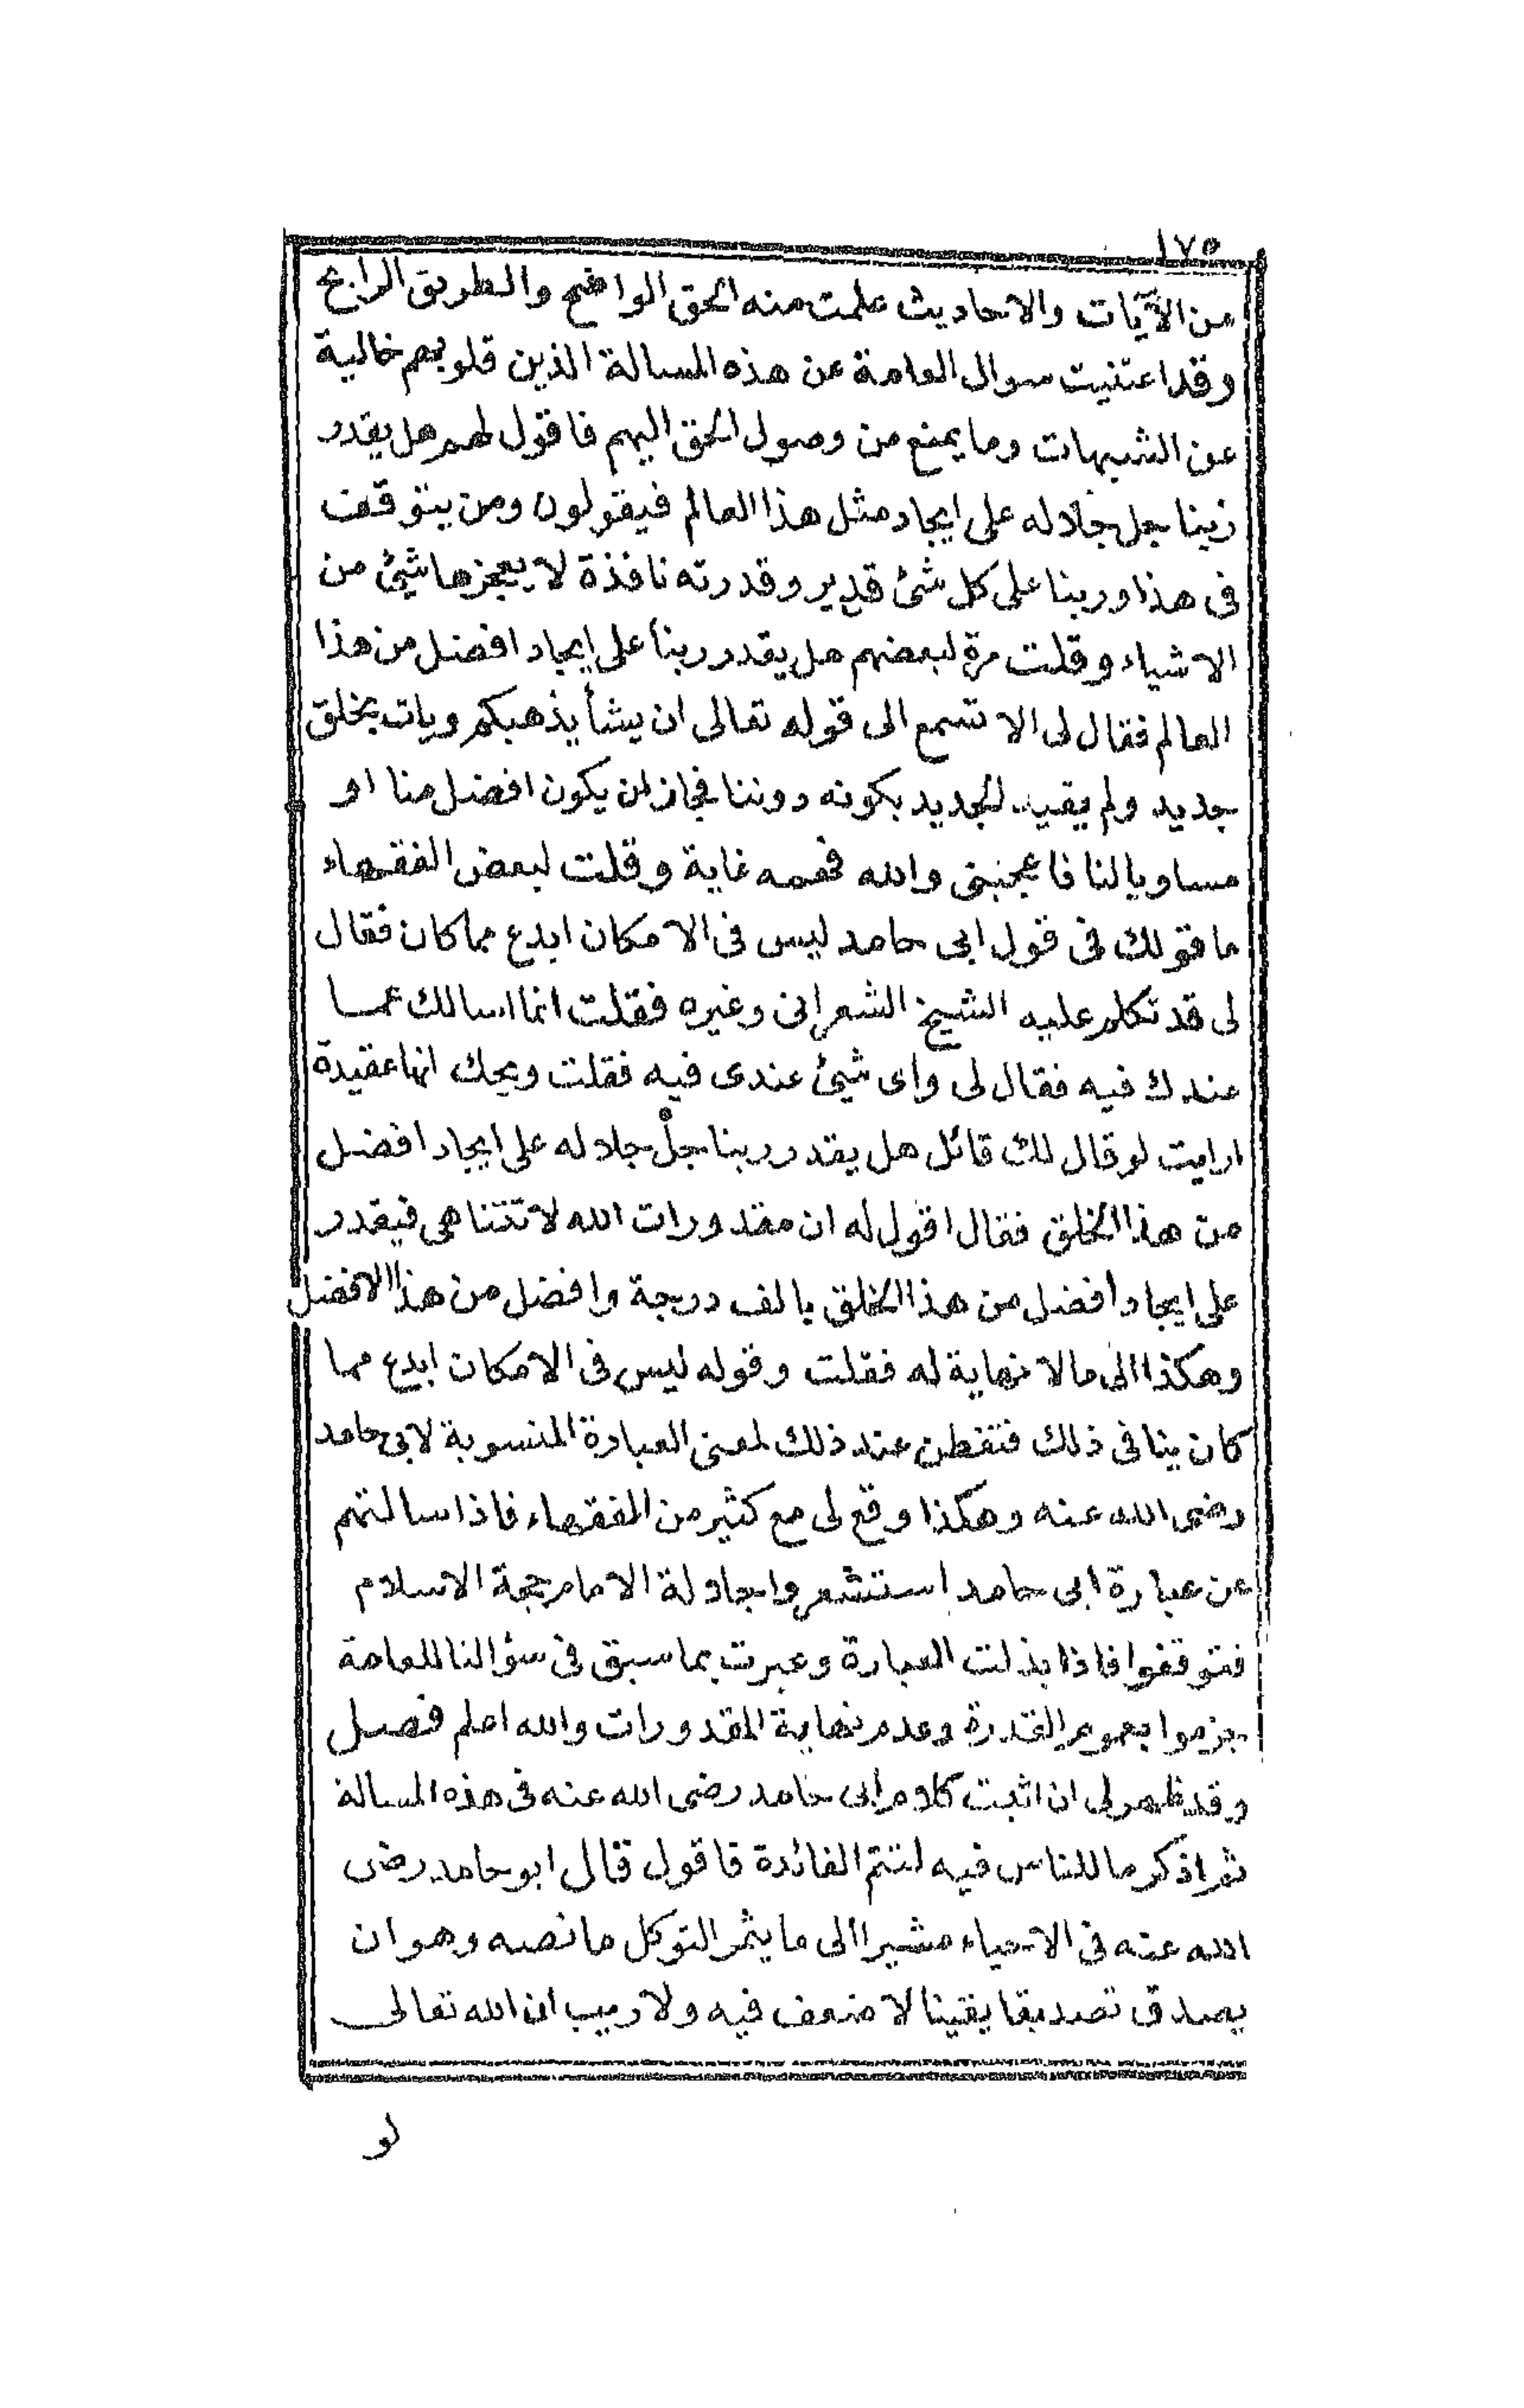 ١٧٥
من الآيات والاحاديث علمت منه الحق الواضح والطريق الرابح
وقد اعتنيت سوال العامة عن هذه المسالة الذين قلوبهم خالية
عن الشبهات وما يمنع من وصول الحق اليهم فاقول لهم هل يقدر
ربنا جل جلاله على ايجاد مثل هذا العالم فيقولون ومن يتوقف
فى هذا وربنا على كل شئ قدير وقدرته نافذة لا يعجزها شئ من
الاشياء وقلت مرة لبعضهم هل يقدر ربنا على ايجاد افضل من هذا
العالم فقال لى الا تسمع الى قوله تعالى ان يشأ يذهبكم ويات بخلق
جديد ولم يقيد الجديد بكونه دوننا فجاز ان يكون افضل منا او
مساويا لنا فاعجبنى والله فهمه غاية وقلت لبعض الفقهاء
ما قولك فى قول ابى حامد ليس فى الامكان ابدع مما كان فقال
لى قد تكلم عليه الشيخ الشعرانى وغيره فقلت انما اسالك عما
عندك فيه فقال لى واى شئ عندى فيه فقلت ويحك انها عقيدة
ارايت لو قال لك قائل هل يقدر ربنا جل جلاله على ايجاد افضل
من هذا الخلق فقال اقول له ان مقدورات الله لا تتناهى فيقدر
على ايجاد افضل من هذا الخلق بالف درجة وافضل من هذا الافضل
وهكذا الى ما لا نهاية له فقلت وقوله ليس فى الامكان ابدع مما
كان ينافى ذلك فتفطن عند ذلك لمعنى العبارة المنسوبة لابى حامد
رضى الله عنه وهكذا وقع لى مع كثير من الفقهاء فاذا سالتهم
عن عبارة ابى حامد استشعروا جلالة الامام حجة الاسلام
فتوقفوا فاذا بدلت العبارة وعبرت بما سبق فى سؤالنا للعامة
جزموا بعموم القدرة وعدم نهاية المقدورات والله اعلم فصل
وقد ظهر لى ان اثبت كلام ابى حامد رضى الله عنه فى هذه المسالة
ثم اذكر ما للناس فيه لتتم الفائدة فاقول قال ابو حامد رضى
الله عنه فى الاحياء مشيرا الى ما يثمر التوكل ما نصه وهو ان
يصدق تصديقا يقينا لا ضعف فيه ولا ريب ان الله تعالى
لو